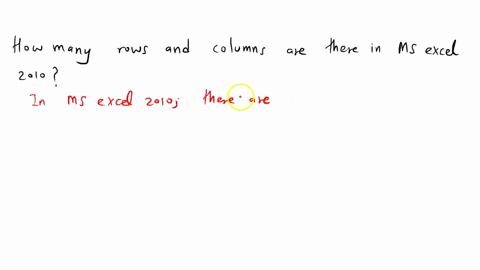 How many rows and columns are there in MS excel
2010?
In MS excel 2010, there are